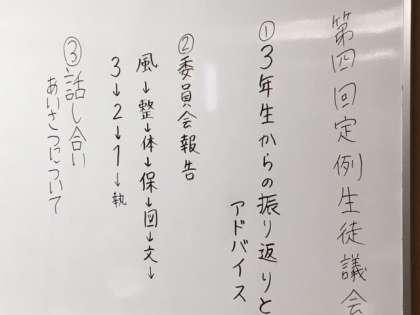 第四回定例生徒議会
①3年生からの振り返りと
アドバイス
②委員会報告
風→整→体→保→図→文→
3→2→1→執
③話し合い
あいさつについて